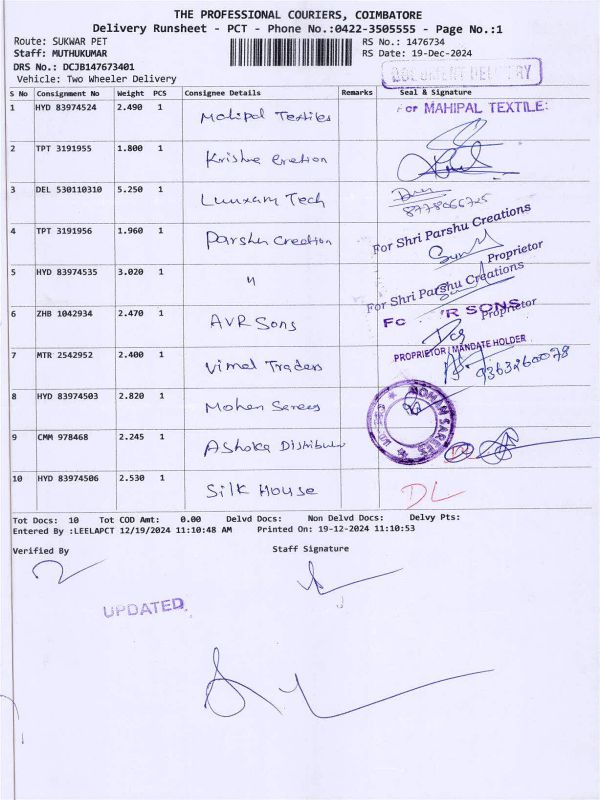 THE PROFESSIONAL COURIERS, COIMBATORE
Delivery Runsheet - PCT - Phone No.:0422-3505555 - Page No.:1
Route: SUKWAR PET RS No.: 1476734
Staff: MUTHUKUMAR RS Date: 19-Dec-2024
DRS No.: DCJB147673401
Vehicle: Two Wheeler Delivery DOCUMENT DELIVERY
S No Consignment No Weight PCS Consignee Details Remarks Seal & Signature
1 HYD 83974524 2.490 1 Mahipal Textiles For MAHIPAL TEXTILE:
2 TPT 3191955 1.800 1 Krishna Creation
3 DEL 530110310 5.250 1 Tech
8778066725
4 TPT 3191956 1.960 1 Parshu Creation For Shri Parshu Creations
Proprietor
5 HYD 83974535 3.020 1 " For Shri Parshu Creations
Proprietor
6 ZHB 1042934 2.470 1 AVR Sons Fc 'R SONS
PROPRIETOR / MANDATE HOLDER
7 MTR 2542952 2.400 1 Vimal Traders 9363260078
8 HYD 83974503 2.820 1 Mohan Sarees MOHAN SAREES
9 CMM 978468 2.245 1 Ashoka Distributor
10 HYD 83974506 2.530 1 Silk House DL
Tot Docs: 10 Tot COD Amt: 0.00 Delvd Docs: Non Delvd Docs: Delvy Pts:
Entered By :LEELAPCT 12/19/2024 11:10:48 AM Printed On: 19-12-2024 11:10:53
Verified By Staff Signature
UPDATED